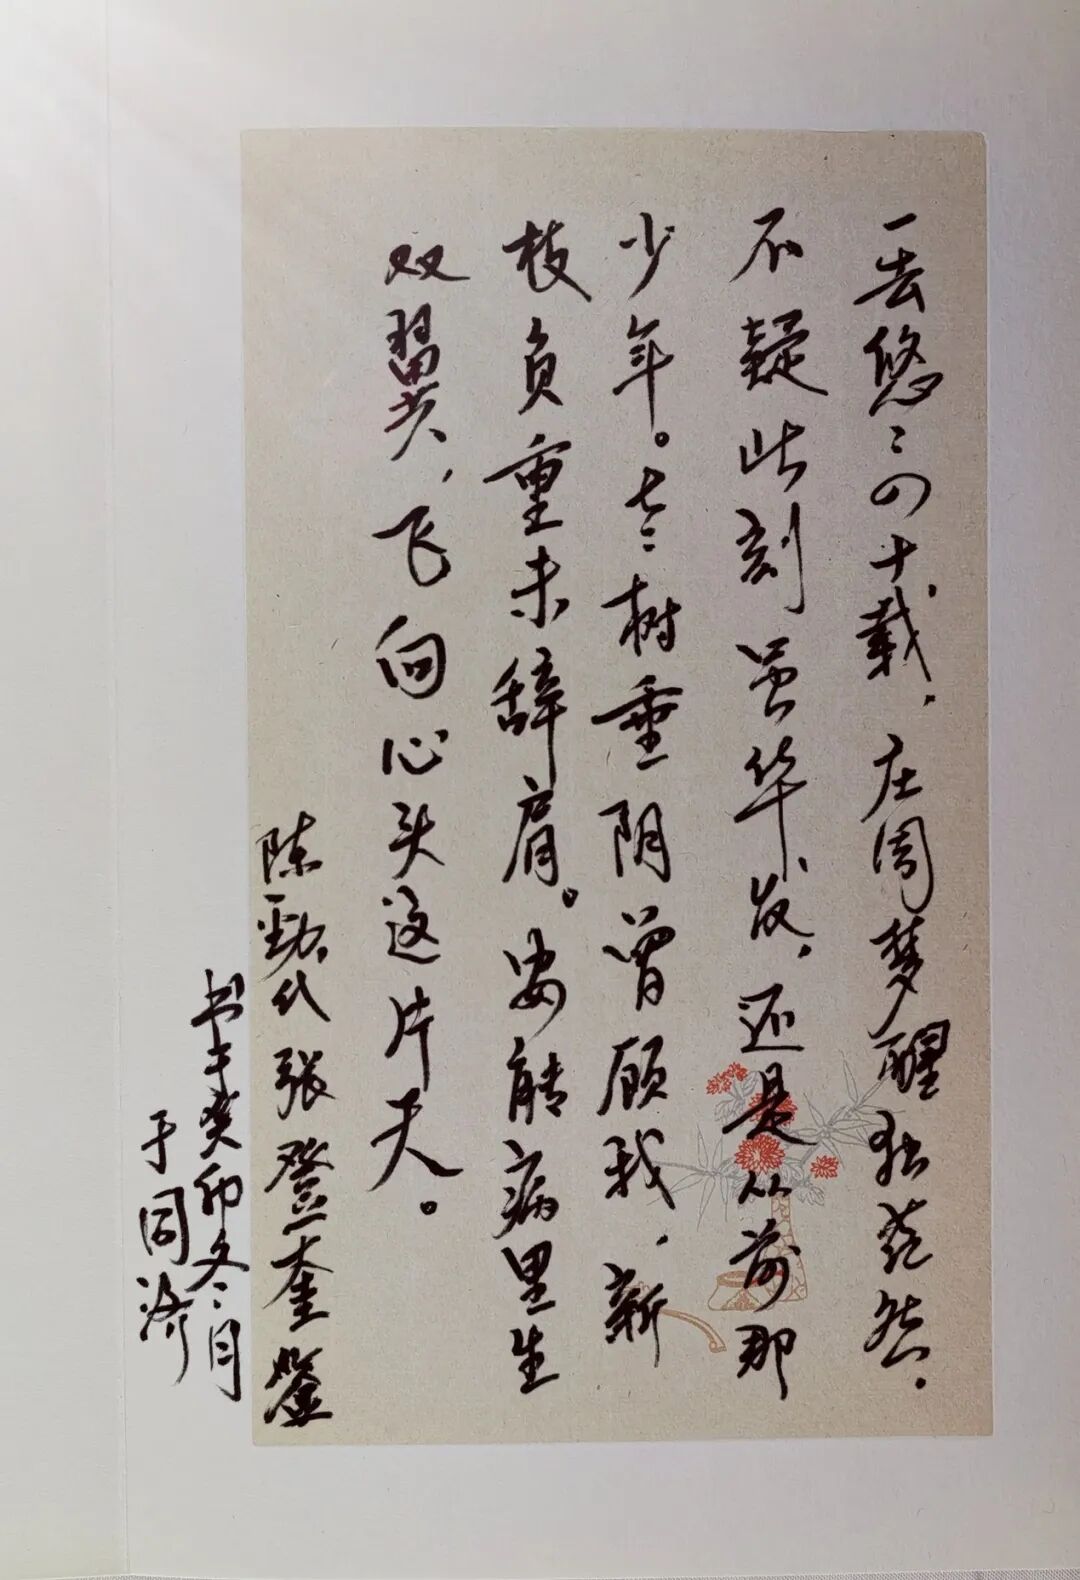 一去悠〻四十载，庄周梦醒独茫然。
不疑此刻虽华发，还是从前那
少年。老树重阴曾顾我，新
枝负重未辞肩。安能病里生
双翼，飞向心头这片天。
陈劲代张登奎鉴
书于癸卯冬月
于同济